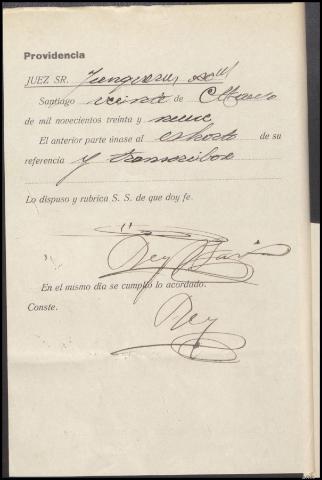 Providencia
JUEZ SR.
Santiago veinte de Marzo
de mil novecientos treinta y nueve
El anterior parte únase al exhorto de su
referencia y transcríbase
Lo dispuso y rubrica S. S. de que doy fe.
Rey
En el mismo día se cumplió lo acordado.
Conste. Rey